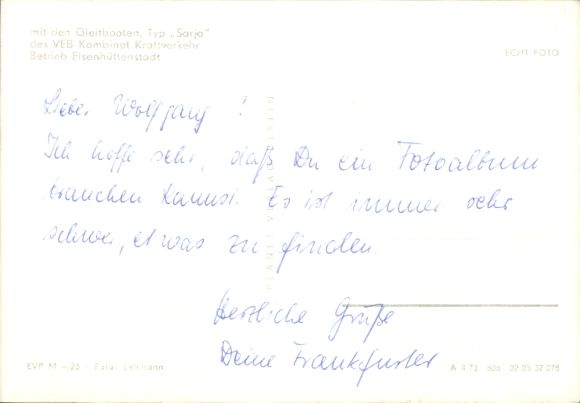 mit den Gleitbooten, Typ „Sarja"
des VEB Kombinat Kraftverkehr
Betrieb Eisenhüttenstadt
ECHT FOTO
Lieber Wolfgang!
Ich hoffe sehr, daß Du ein Fotoalbum
brauchen kannst. Es ist immer sehr
schwer, etwas zu finden.
Herzliche Grüße
Deine Frankfurter
PLANET-VERLAG BERLIN
EVP M -,25 · Foto: Lehmann
A 4/73 626 02 05 32 078